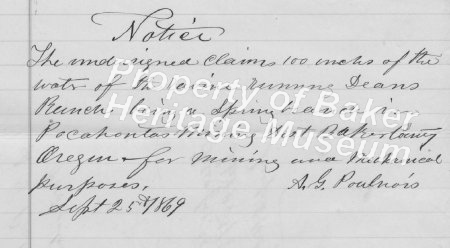 Notice
The undersigned Claims 100 inchs of the
water of the running Deans
Ranch Spring Branch in
Pocahontas Mining Dist Baker County
Oregon for Mining and
purposes.
A.G. Poulnois
Sept 25th 1869
Property of Baker
Heritage Museum